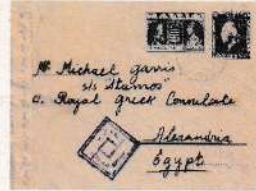 Mr Michael Garris
s/s "Atamos"
c. Royal Greek Consulate
Alexandria
Egypt